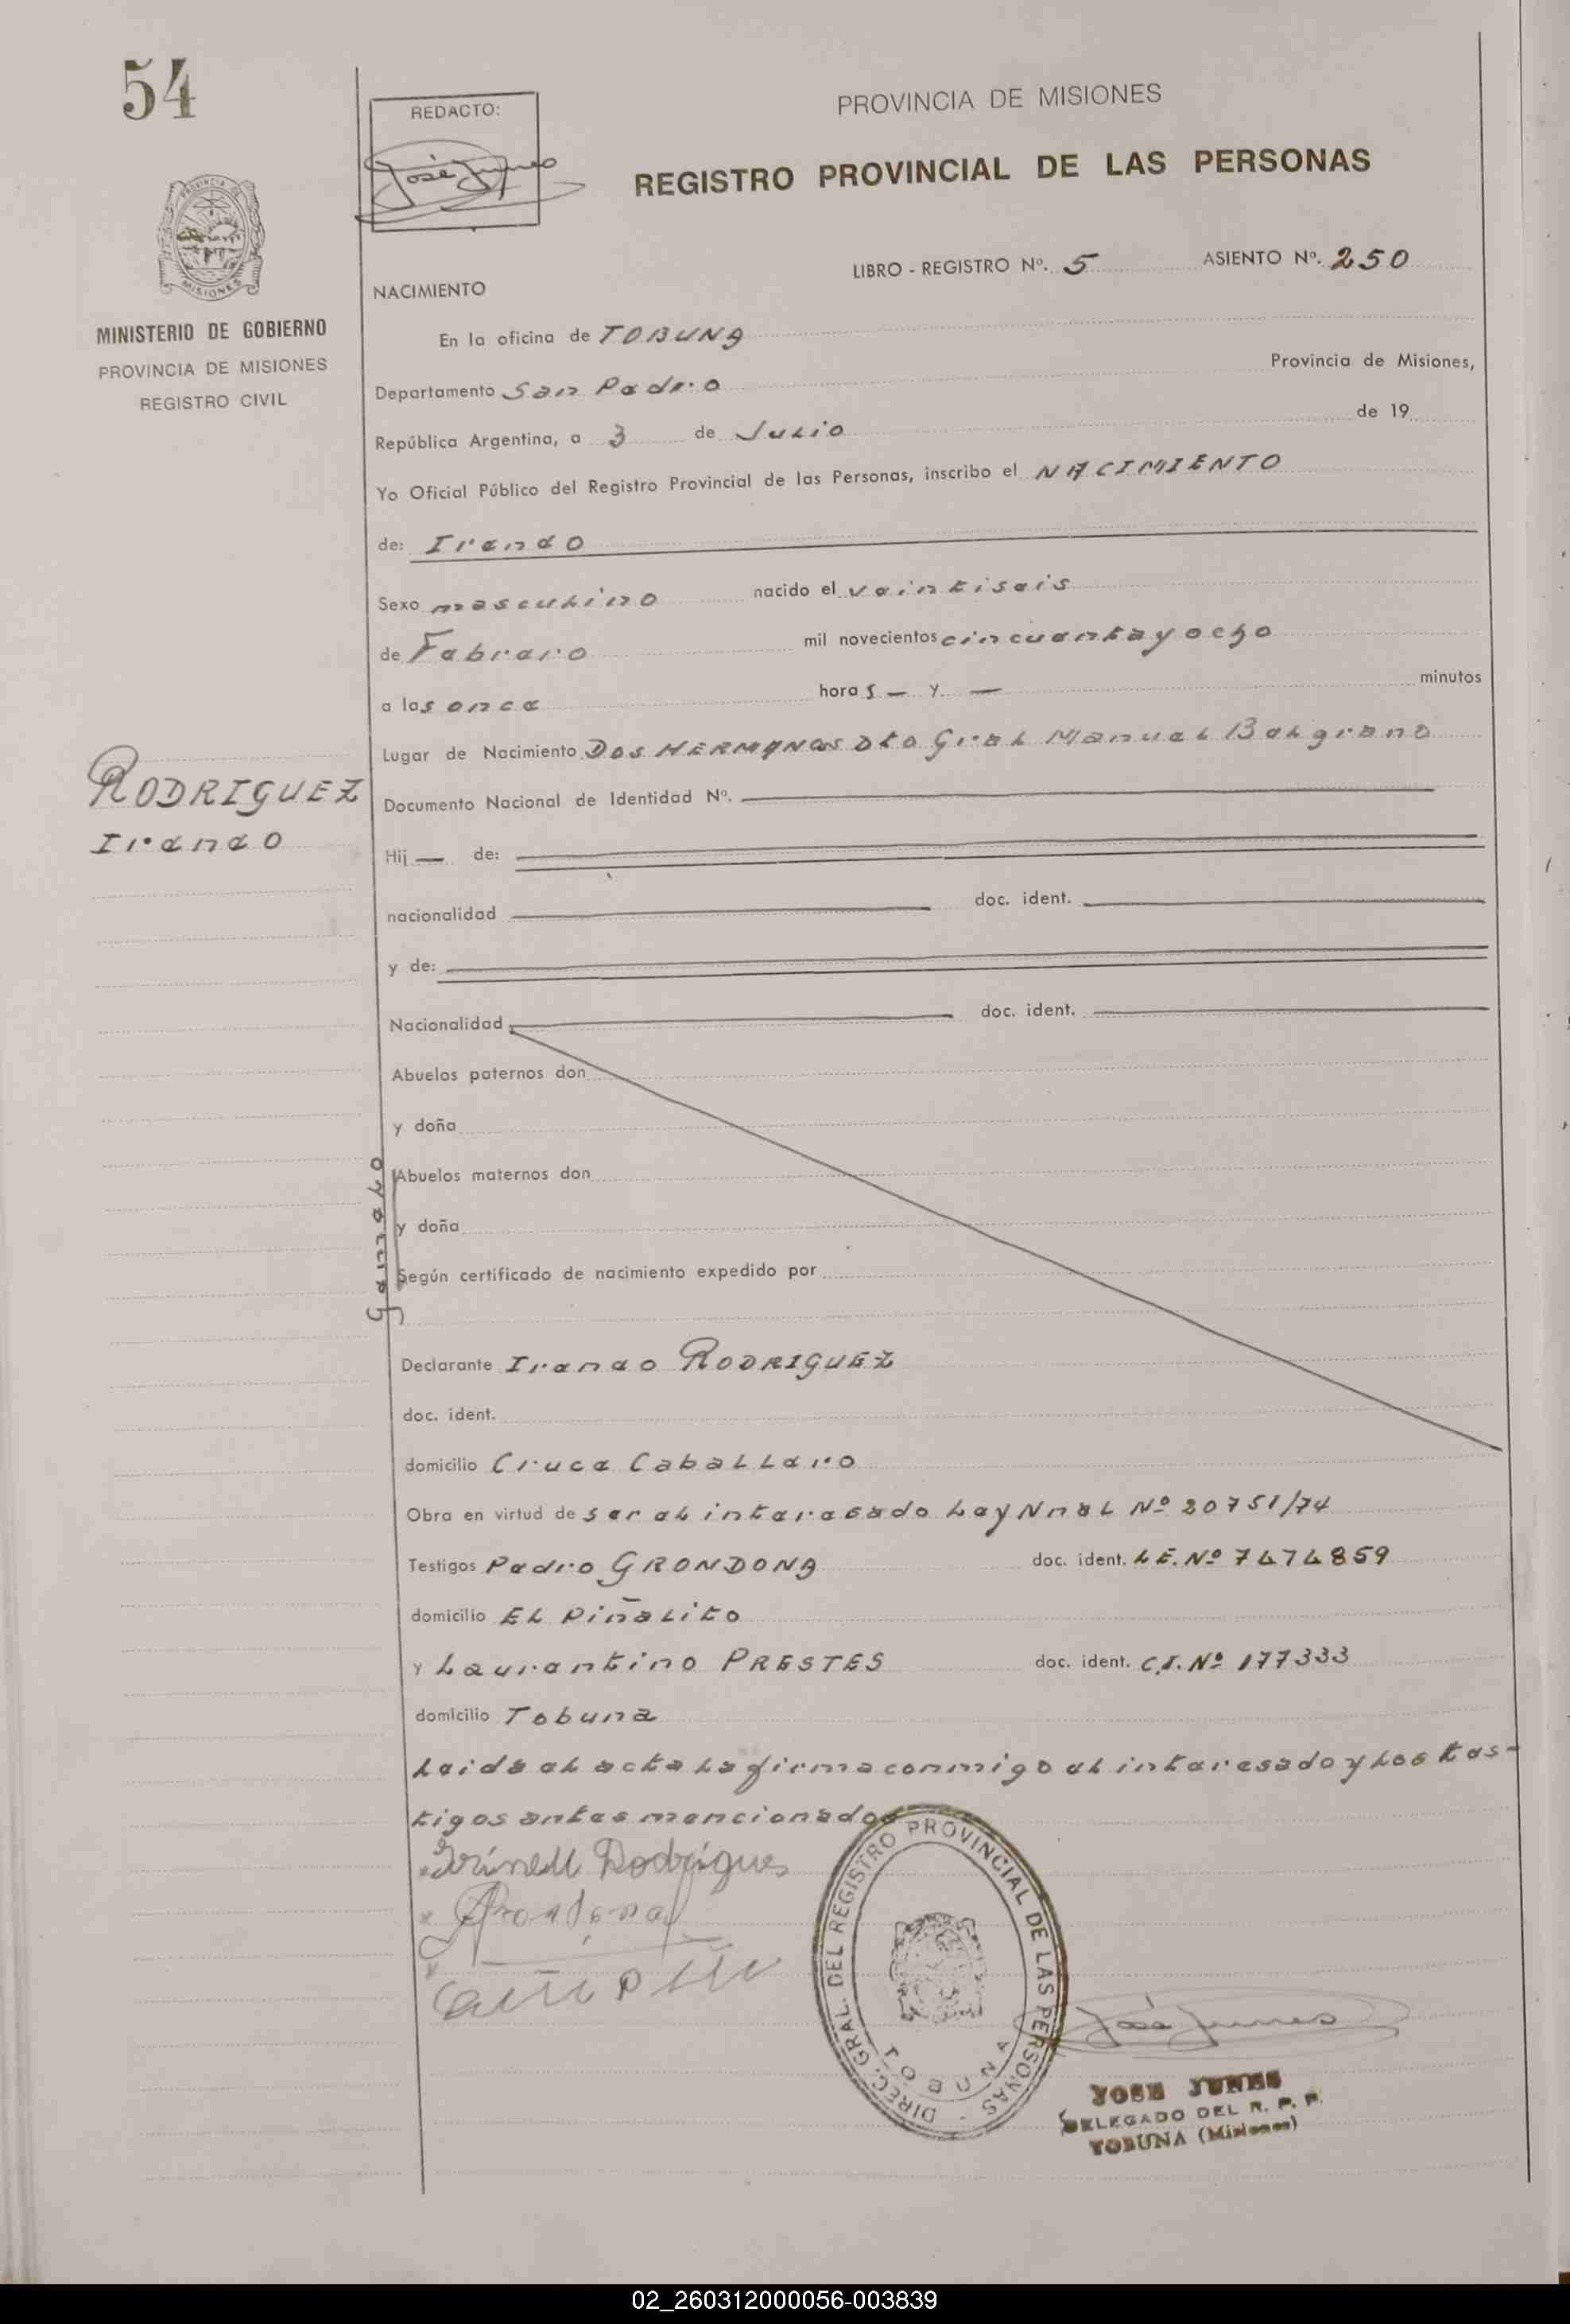 54
REDACTO:
José Junes
PROVINCIA DE MISIONES
REGISTRO PROVINCIAL DE LAS PERSONAS
PROVINCIA DE
MISIONES
MINISTERIO DE GOBIERNO
PROVINCIA DE MISIONES
REGISTRO CIVIL
LIBRO - REGISTRO Nº. 5 ASIENTO Nº. 250
NACIMIENTO
En la oficina de TOBUNA
Provincia de Misiones,
Departamento San Pedro
República Argentina, a 3 de Julio de 19
Yo Oficial Público del Registro Provincial de las Personas, inscribo el NACIMIENTO
de: Ireneo
Sexo masculino nacido el veintiseis
de Febrero mil novecientos cincuenta y ocho
a las once horas — y — minutos
Lugar de Nacimiento Dos HERMANas Dto Gral Manuel Belgrano
RODRIGUEZ
Ireneo
Documento Nacional de Identidad Nº.
Hij — de:
nacionalidad doc. ident.
y de:
Nacionalidad doc. ident.
Abuelos paternos don
y doña
Abuelos maternos don
y doña
Según certificado de nacimiento expedido por
Declarante Ireneo RODRIGUEZ
doc. ident.
domicilio Cruce Caballero
Obra en virtud de ser el interesado Ley Nnal Nº 20751/74
Testigos Pedro GRONDONA doc. ident. LE. Nº 7474859
domicilio EL Piñalito
y Laurentino PRESTES doc. ident. C.I. Nº 177333
domicilio Tobuna
Leida el acta la firma conmigo el interesado y los tes-
tigos antes mencionados
Rodrigues
Grondona
DIREC. GRAL. DEL REGISTRO PROVINCIAL DE LAS PERSONAS
TOBUNA
José Junes
JOSE JUNES
DELEGADO DEL R. P. P.
TOBUNA (Misiones)
02_260312000056-003839